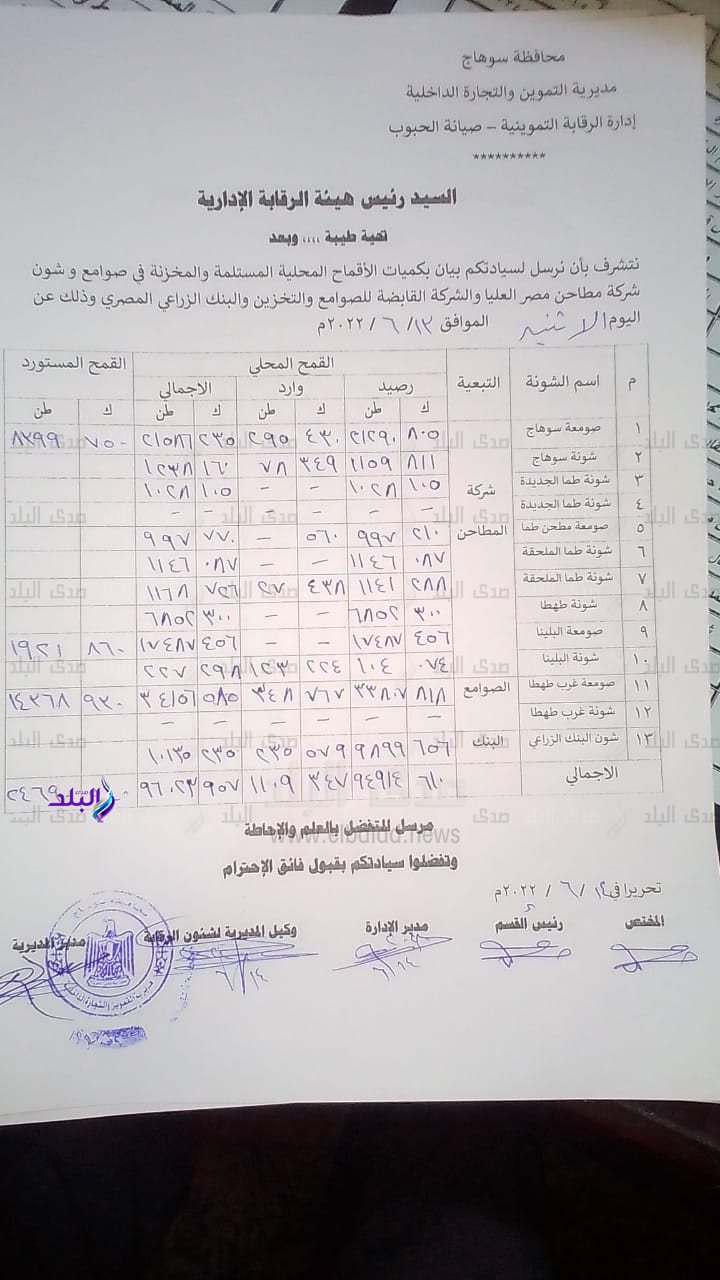 محافظة سوهاج
مديرية التموين والتجارة الداخلية
إدارة الرقابة التموينية – صيانة الحبوب
**********
السيد رئيس هيئة الرقابة الإدارية
تحية طيبة .... وبعد
نتشرف بأن نرسل لسيادتكم بيان بكميات الأقماح المحلية المستلمة والمخزنة في صوامع و شون
شركة مطاحن مصر العليا والشركة القابضة للصوامع والتخزين والبنك الزراعي المصري وذلك عن
اليوم الاثنين الموافق ١٣ / ٦ / ٢٠٢٢م
م اسم الشونة التبعية القمح المحلي القمح المستورد
رصيد وارد الاجمالي
ك طن ك طن ك طن ك طن
١ صومعة سوهاج ٨٠٥ ٢١٢٩٠ ٤٣٠ ٢٩٥ ٢٣٥ ٢١٥٨٦ ٧٥٠ ٨٣٩٩
٢ شونة سوهاج ٨١١ ١١٥٩ ٣٤٩ ٧٨ ١٦٠ ١٢٣٨
٣ شونة طما الجديدة شركة ١٠٥ ١٠٢٨ – – ١٠٥ ١٠٢٨
٤ شونة طما الجديدة – – – – – –
٥ صومعة مطحن طما المطاحن ٢١٠ ٩٩٧ ٥٦٠ – ٧٧٠ ٩٩٧
٦ شونة طما الملحقة ٠٨٧ ١١٤٦ – – ٠٨٧ ١١٤٦
٧ شونة طما الملحقة ٧٨٢ ١١٤١ ٨٣٤ ٢٧ ٦٢٨ ١١٦٨
٨ شونة طهطا ٣٠٠ ٢٥٧٦ – – ٣٠٠ ٢٥٧٦
٩ صومعة البلينا ٦٥٤ – – ٦٥٤ ٨٦٠ ١٩٢١
١٠ شونة البلينا
١١ صومعة غرب طهطا الصوامع ٧١٧ ٣٣٨٠٧ ٨٦٧ ٣٤٧ ٥٨٥ ٣٤١٥٤ ٩٢٠ ١٤٣٦٨
١٢ شونة غرب طهطا – – – – – –
١٣ شون البنك الزراعي البنك ٦٥٦ ٩٨٩٩ ٥٧٩ ٢٣٥ ٢٣٥ ١٠١٣٥
الاجمالي ٦١٠ ٩٤٩١٤ ٣٤٧ ١١٠٩ ٩٥٧ ٩٦٠٢٣
صدى البلد
www.elbalad.news
مرسل للتفضل بالعلم والإحاطة
وتفضلوا سيادتكم بقبول فائق الإحترام
تحريرا في ١٤ / ٦ / ٢٠٢٢م
المختص رئيس القسم مدير الإدارة وكيل المديرية لشئون الرقابة مدير المديرية
٦/١٤ ٦/١٤
مديرية التموين والتجارة الداخلية